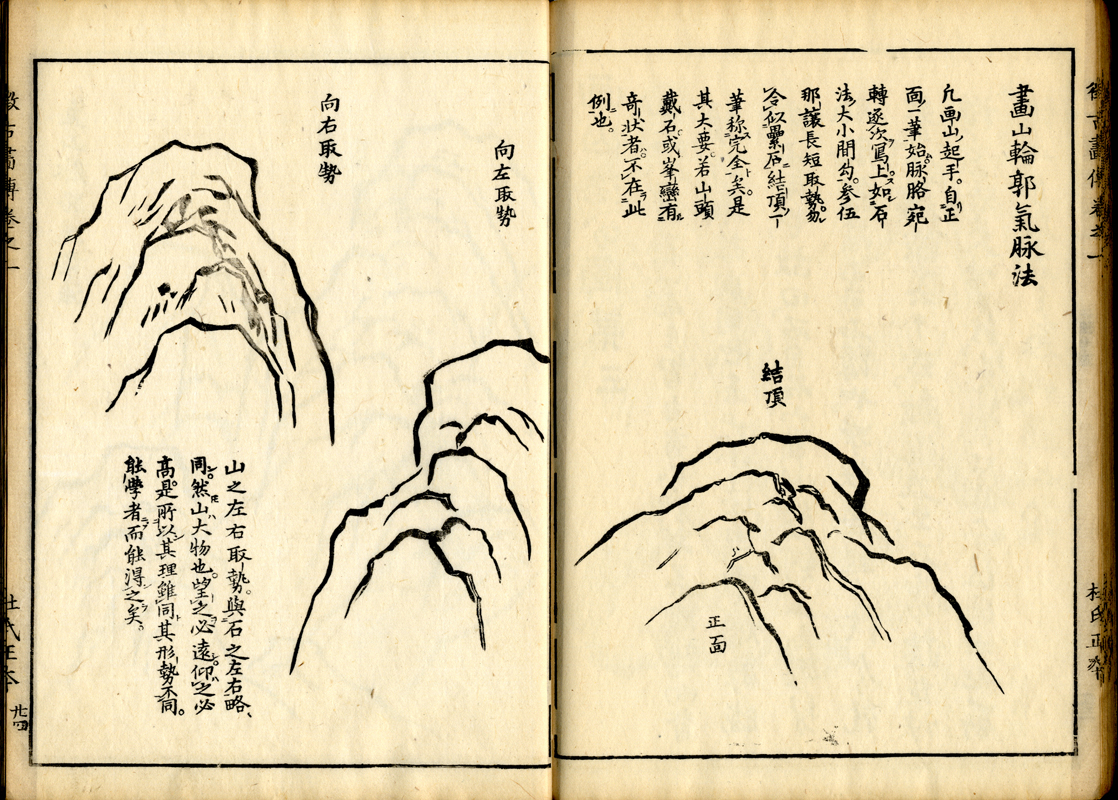 畫山輪郭氣脉法
凢画山起手自正
面一筆始脉胳宛
轉逐次寫上如石
法大小閒勾參伍
那讓長短取勢勿
令似壘石結頂一
筆称完全矣是
其大要若山頭
戴石或峯巒有
奇状者不在此
例也。
結頂
正面
向左取勢
向右取勢
山之左右取勢與石之左右略、
同然山大物也望之必遠仰之必
高是所以其理雖同其形勢不同。
能學者而能得之矣。
杜氏正本
廿四